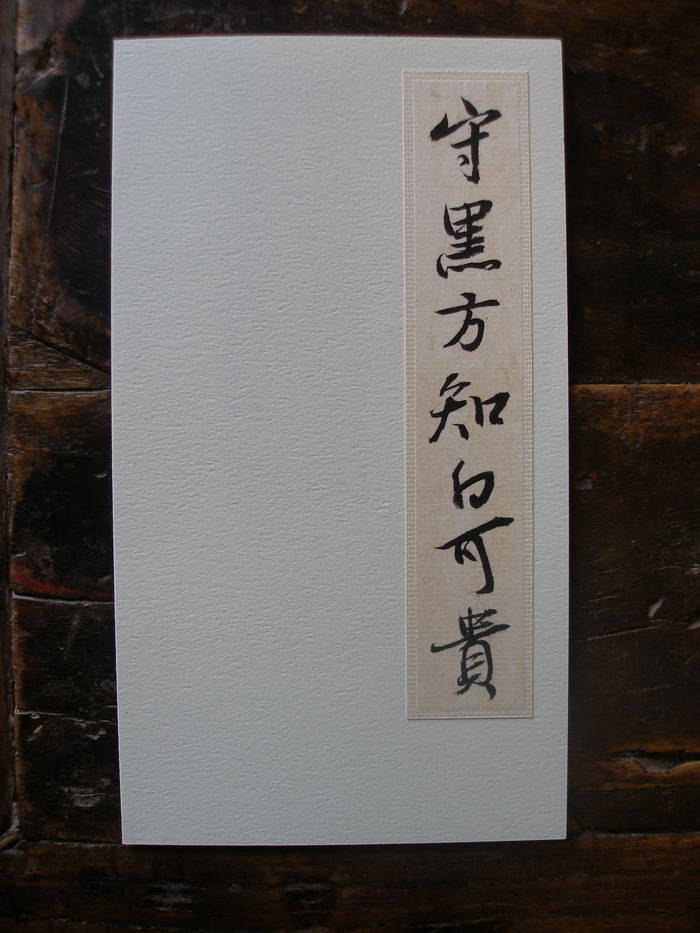 守黑方知白可貴